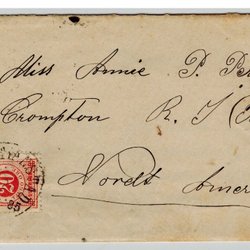 Miss Annie P.
Crompton R. I
Nordt Amer
20